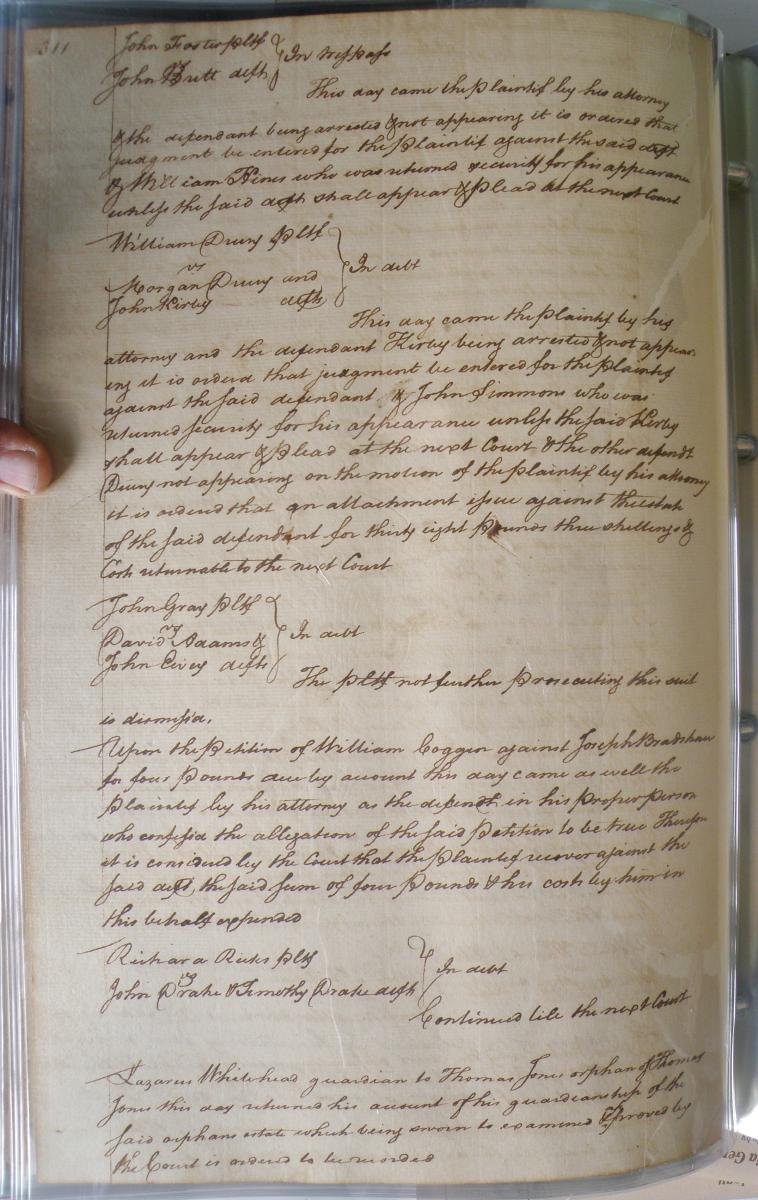 311
John Foster pltf
vs
John Britt deft
In trespass
This day came the Plaintif by his attorney
& the defendant being arrested & not appearing it is ordered that
judgment be entered for the Plaintif against the said deft
& William Hines who was returned security for his appearance
unless the said deft shall appear & Plead at the next Court
William Drury Pltf
vs
Morgan Drury and
John Kirby defts
In debt
This day came the Plaintif by his
attorney and the defendant Kirby being arrested & not appear
ing it is orderd that judgment be entered for the Plaintif
against the said defendant & John Simmons who was
returned security for his appearance unless the said Kirby
shall appear & Plead at the next Court & the other defendt
Drury not appearing on the motion of the Plaintif by his attorney
it is ordered that an attachment issue against the estate
of the said defendant for thirty eight Pounds three shillings &
Costs returnable to the next Court
John Gray Pltf
vs
David Adams &
John Ivey defts
In debt
The Pltf not further Prosecuting this suit
is dismissd.
Upon the Petition of William Coggin against Joseph Bradshaw
for four Pounds due by account this day came as well the
Plaintif by his attorney as the defendt in his Proper Person
who confessd the allegation of the said Petition to be true Therefore
it is considered by the Court that the Plaintif recover against the
said deft the said sum of four Pounds & his costs by him in
this behalf expended
Richard Ricks pltf
vs
John Drake & Timothy Drake defts
In debt
Continued till the next Court
Lazarus Whitehead guardian to Thomas Jones orphan of Thomas
Jones this day returned his account of his guardianship of the
said orphans estate which being sworn to examined & approved by
the Court is ordered to be recorded